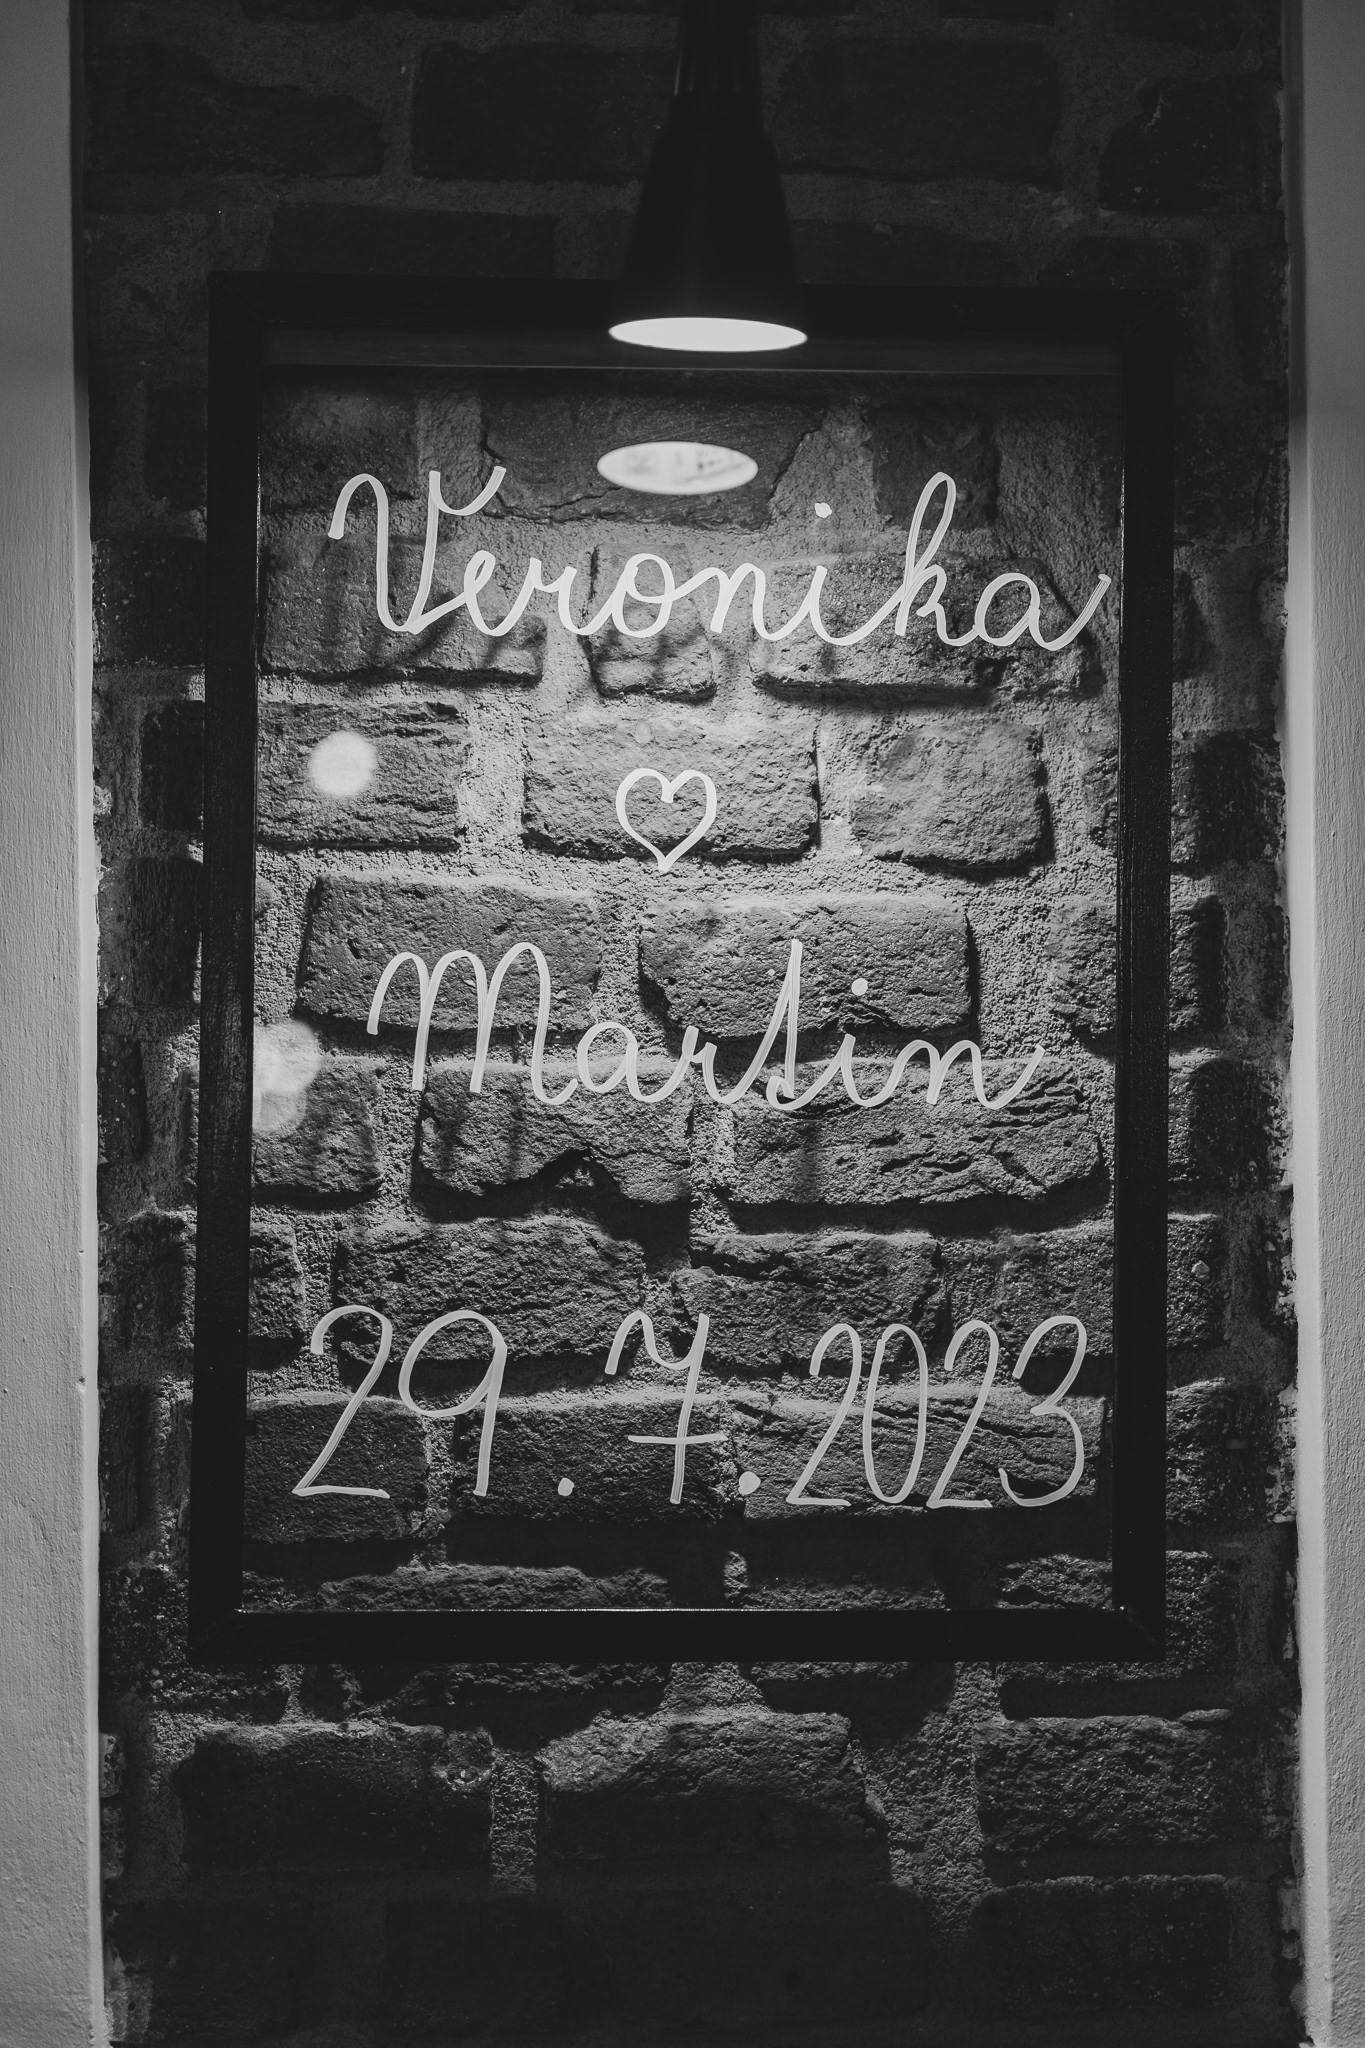 Veronika
♡
Martin
29.7.2023